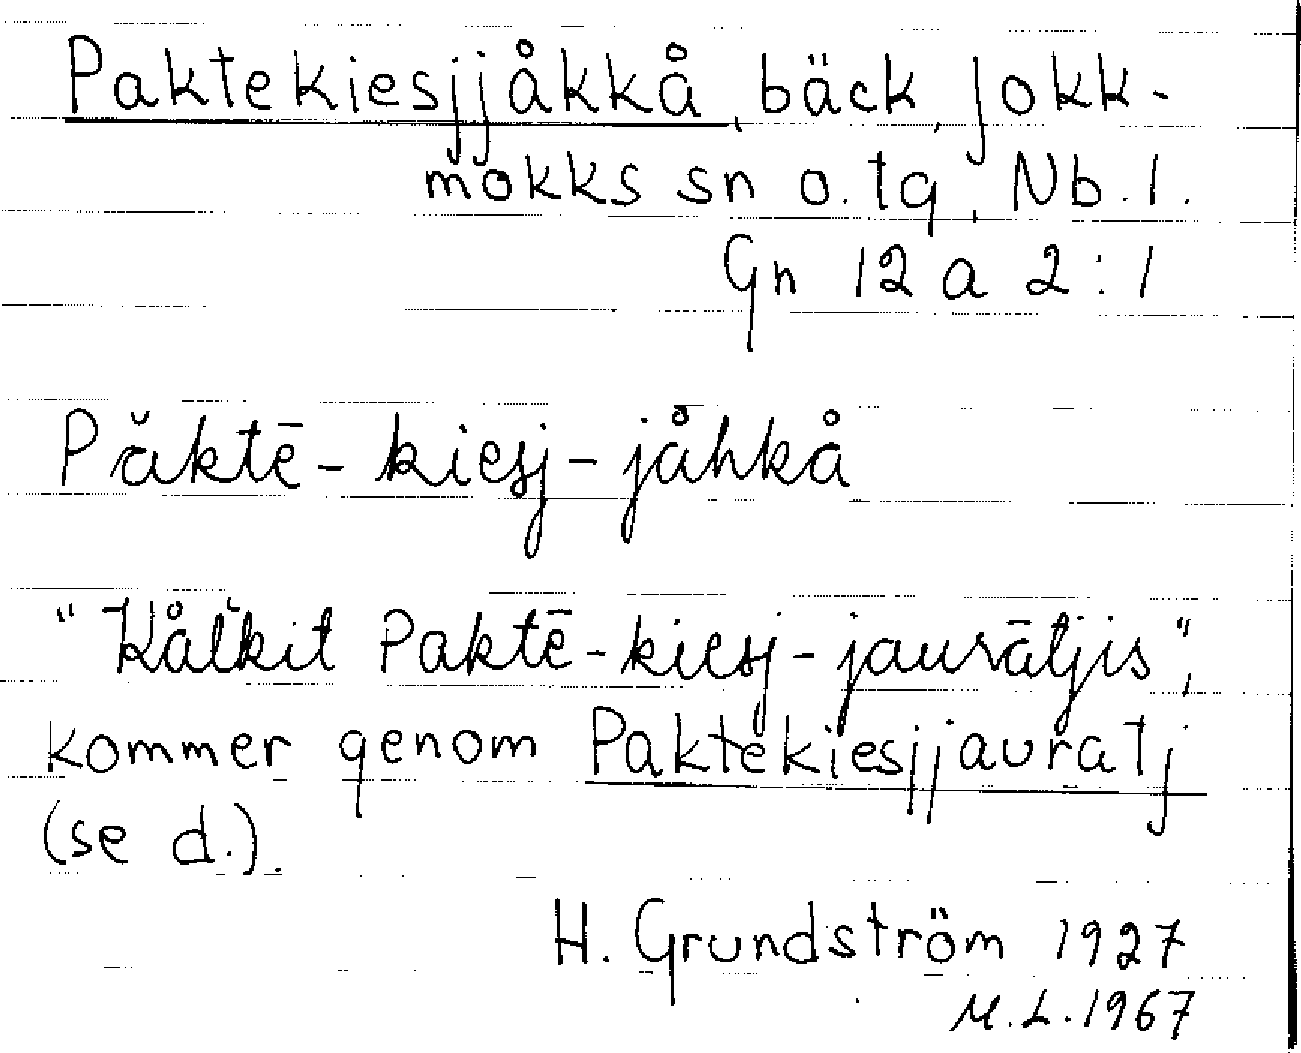 Paktekiesjjåkkå, bäck, Jokk-
mokks sn o. tg, Nb. l.
Gn 12 a 2 : 1
Păktē - kiesj - jåhkå
"Kål'kit Paktē - kiesj - jaurātjis",
kommer genom Paktekiesjjauratj
(se d.).
H. Grundström 1927
M. L. 1967